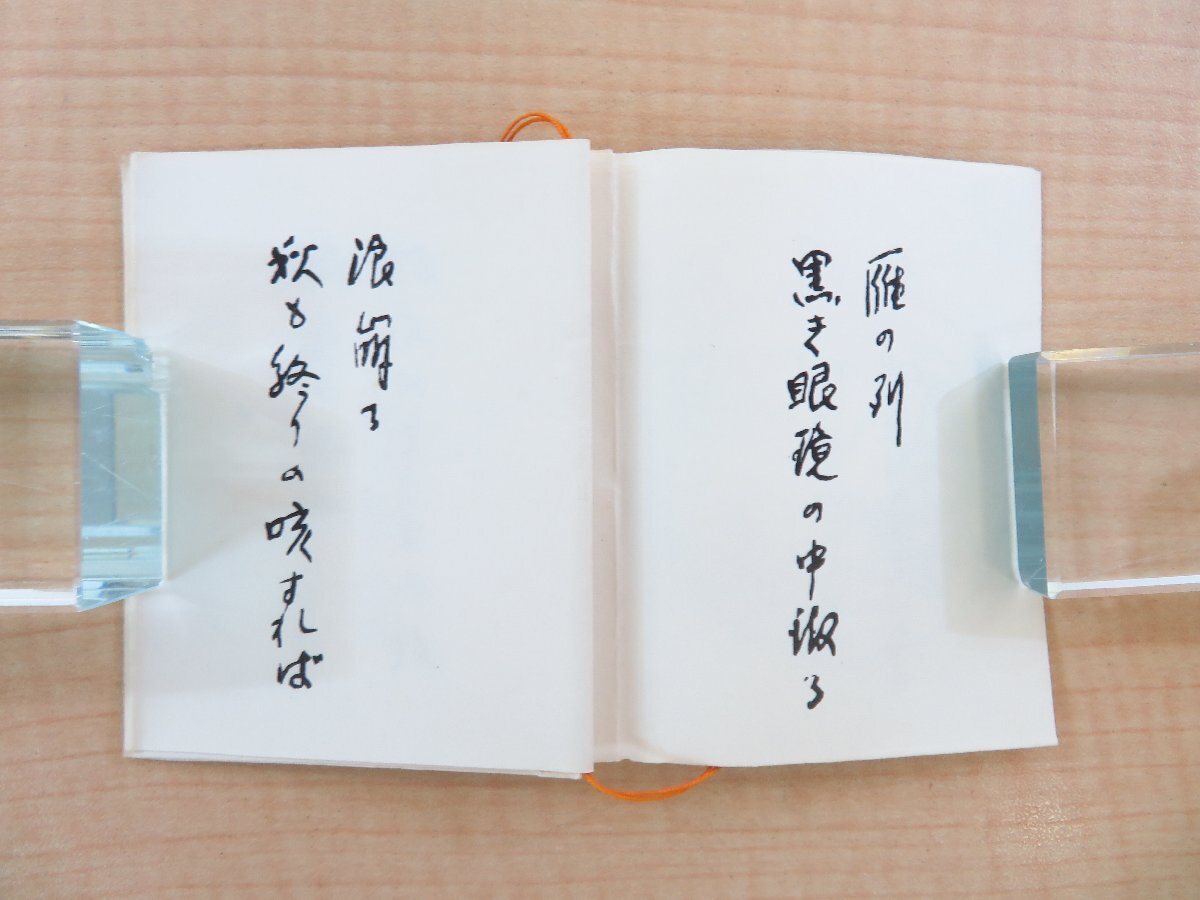 雁の列
黒き眼鏡の中濁る
浪崩る
秋も終りの咳すれば